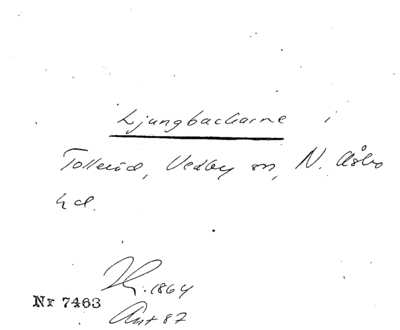 Ljungbackarne i
Tolleröd, Vedby sn, N. Åsbo
hd.
1864
Nr 7463
Ant 87